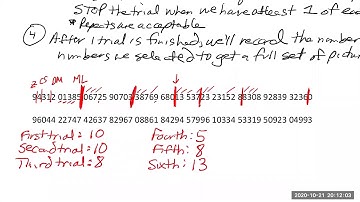 STOP the trial when we have atleast 1 of eac
*Repeats are acceptable
④ After 1 trial is finished, we'll record the number
numbers we selected to get a full set of pictur
ZC DM ML
94312 01385 06725 90703 38769 68013 53723 23152 88308 92839 32360
96044 22747 42637 82967 08861 84294 57996 10334 53319 50923 04993
First trial: 10 Fourth: 5
Second trial: 10 Fifth: 8
Third trial: 8 Sixth: 13
2020-10-21 20:12:03